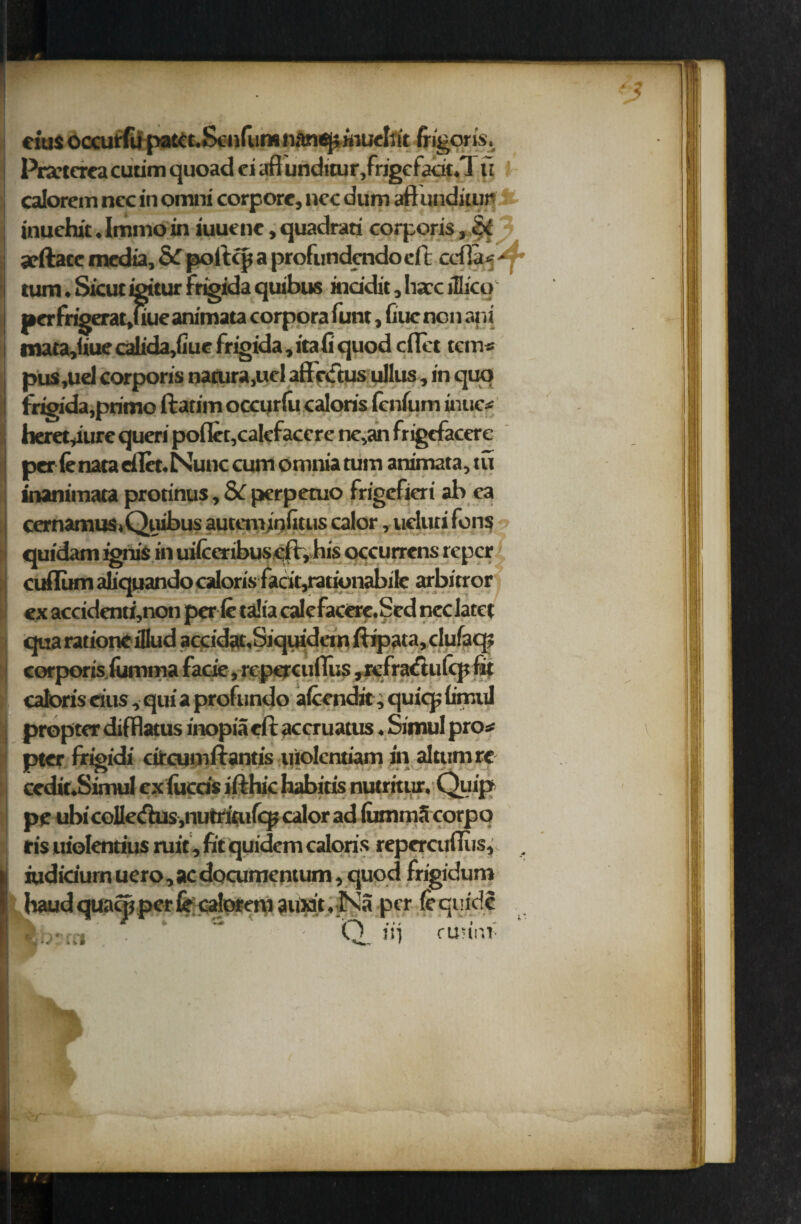 eius occursu patet. Sensum nanq; inuehit frigoris.
Præterea cutim quoad ei affunditur, frigefacit. Tū
calorem nec in omni corpore, nec dum affunditur
inuehit. Immo in iuuene, quadrati corporis, &
æstate media, & postq; a profundendo est cessa⸗
tum. Sicut igitur frigida quibus incidit, hæc illico
perfrigerat, siue animata corpora sunt, siue non ani
mata, siue calida, siue frigida, ita si quod esset tem⸗
pus, uel corporis natura, uel affectus ullus, in quo
frigida, primo statim occursu caloris sensum inue⸗
heret, iure queri posset, calefacere ne, an frigefacere
per se nata esset. Nunc cum omnia tum animata, tū
inanimata protinus, & perpetuo frigefieri ab ea
cernamus. Quibus autem insitus calor, ueluti fons
quidam ignis in uisceribus est, his occurrens reper
cussum aliquando caloris facit, rationabile arbitror
ex accidenti, non per se talia calefacere. Sed nec latet
qua ratione illud accidat. Siquidem stipata, clusaq;
corporis summa facie, repercussus, refractusq; fit
caloris eius, qui a profundo ascendit, quiq; simul
propter difflatus inopiā est accruatus. Simul pro⸗
pter frigidi circumstantis uiolentiam in altum re
cedit. Simul ex succis isthic habitis nutritur. Quip
pe ubi collectus, nutritusq; calor ad summā corpo
ris uiolentius ruit, fit quidem caloris repercussus,
iudicium uero, ac documentum, quod frigidum
haud quaq; per se calorem auxit. Nā per se quidē
Q iij cutim